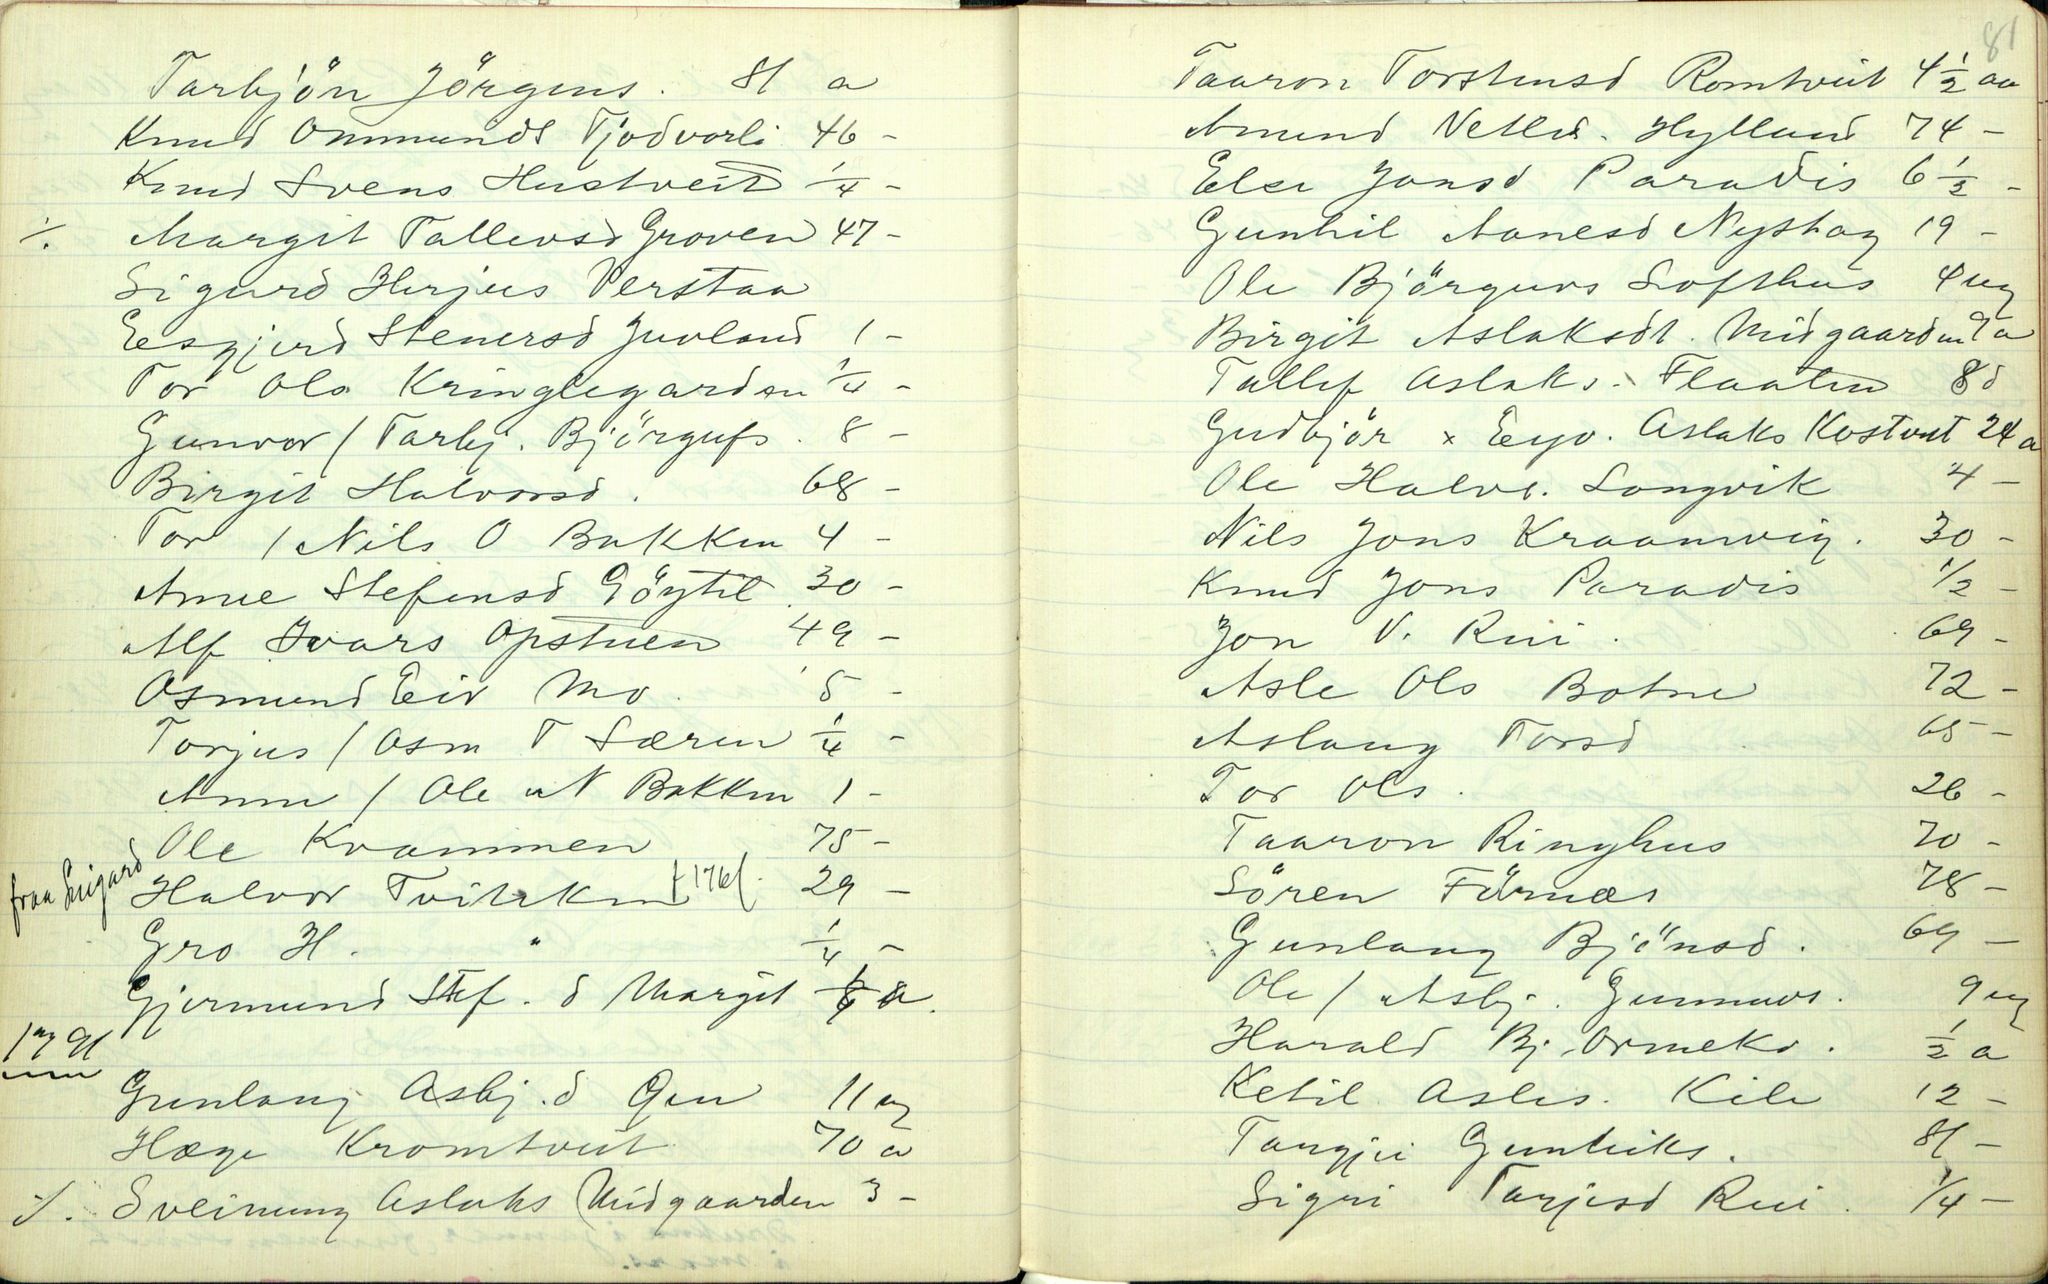 Tarbjön Jörgens. 81 a
Knud Ommunds Tjodvorli 46 -
Knud Svens Hustveit 1/4 -
·/. Margit Tallevsd Groven 47 -
Sigurd Herjus Verstaa
Eesgjerd Stenersd Juvland 1 -
Tor Ols Kringlegarden 1/4 -
Gunvor / Tarbj. Björgufs. 8 -
Birgit Halvorsd. 68 -
Tor / Nils O Bakken 4 -
Anne Stefensd Göytil 30 -
Alf Ivars Opstuen 49 -
Osmund Eiv Mo. 5 -
Torjus / Osm T Særen 1/4 -
Anne / Ole N Bakken 1 -
Ole Kvammen 75 -
fraa Luigard
Halvor Tvitekin [1761]. 29 -
Gro H. " 1/4 -
Gjermund Stef. d Margit 1/4 a.
1791
Gunlaug Asbj. d Gru 11 ug
Hæge Kromtveit 70 a
·/. Sveinung Aslaks Midgaarden 3 -
81
Taaron Torstensd Romtveit 4 1/2 aa
Amund Netles. Hylland 74 -
Else Jonsd Paradis 6 1/2 -
Gunhil Aanesd Nystog 19 -
Ole Björguvs Lofthus 4 ug
Birgit Aslaksdt. Midgaarden 9 a
Tallef Aslaks. Flaaten 8 d
Gudbjör x Eyv. Aslaks Kostveit 24 a
Ole Halvs. Songvik 4 -
Nils Jons Kraamvig. 30 -
Knud Jons Paradis 1/2 -
Jon V. Rui. 69 -
Asle Ols Botne 72 -
Aslaug Torsd 65 -
Tor Ols. 26 -
Taaron Ringhus 70 -
Sören Förnæs 78 -
Gunlaug Bjönsd. 69 -
Ole / Asbj. Gunnuvs. 9 ug
Harald Bj. Ormeks. 1/2 a
Ketil Asles. Kile 12 -
Targjei Gunleiks. 81 -
Sigri Tarjesd Rui. 1/4 -